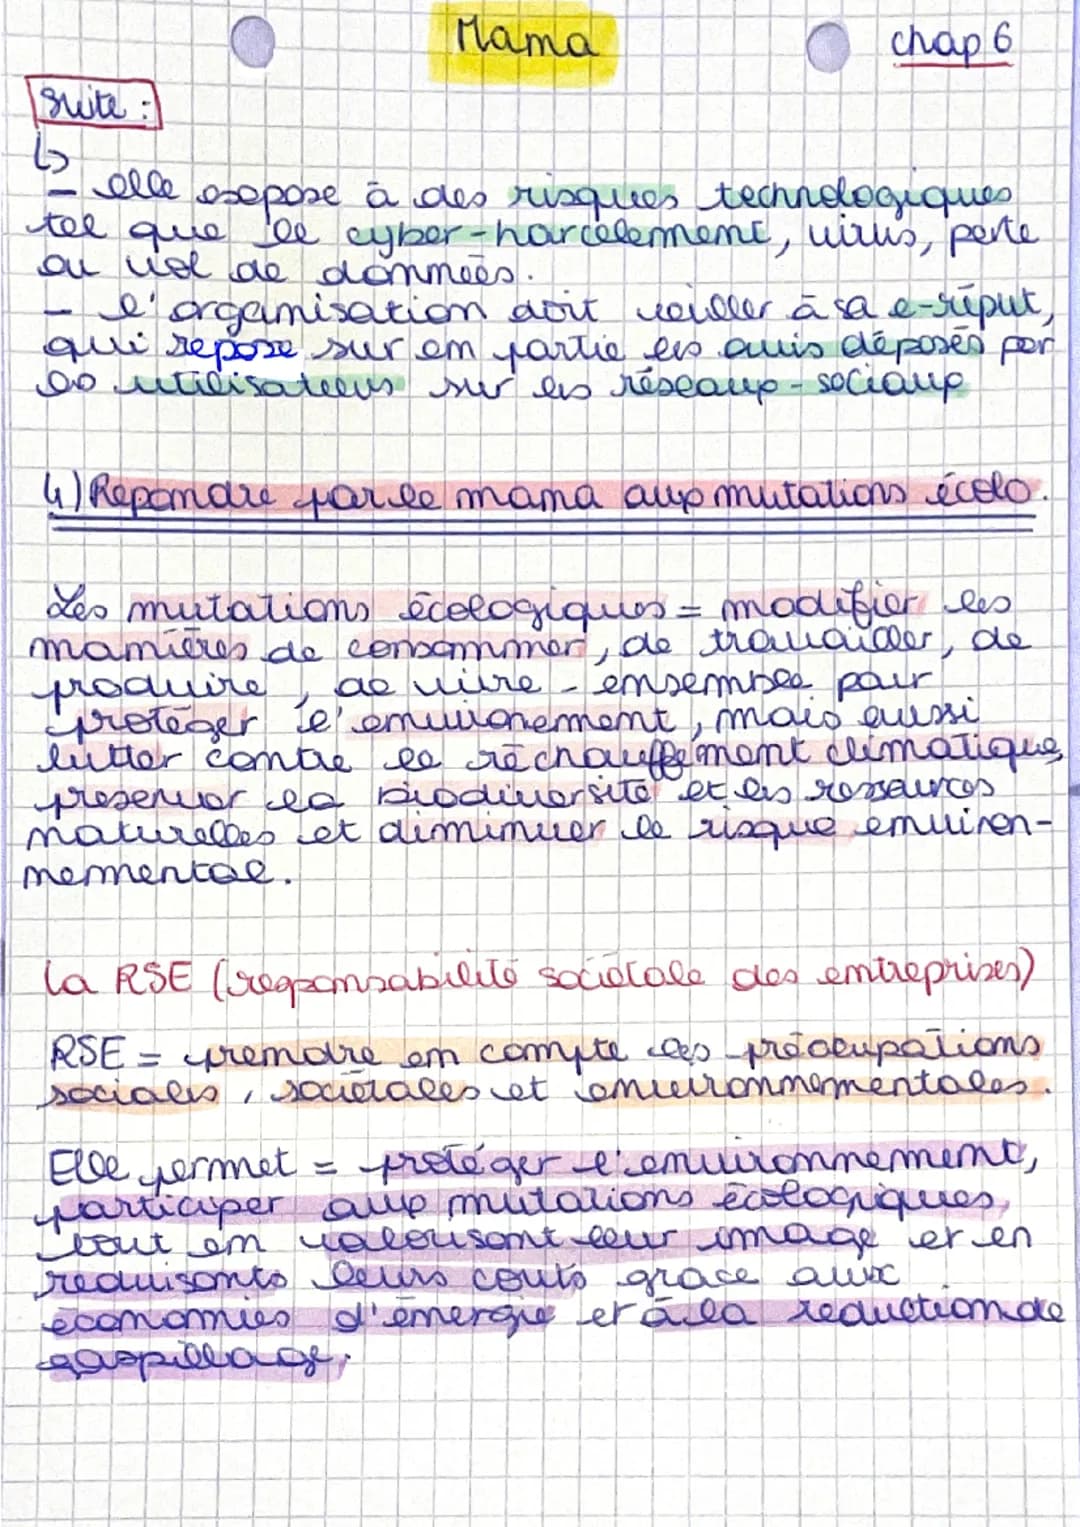 Mama
chap 6
Suite :
↳
- elle expose à des risques technologiques
tel que le cyber-harcèlement, virus, perte
ou vol de données.
- l'organisation doit veiller à sa e-réput,
qui repose sur em partie les avis déposés par
les utilisateurs sur les réseaux-sociaux
4) Repondre par le mana aux mutations écolo.
Les mutations écologiques = modifier les
manières de consommer, de travailler, de
produire, de vivre-ensemble pour
protéger l'environement, mais aussi
lutter contre le réchauffement climatique,
preserver la biodiversité et les ressources
naturelles et diminuer le risque environ-
nemental.
La RSE (responsabilité sociétale des entreprises)
RSE = prendre en compte les préocupations
sociales, sociétales et environnementales.
Elle permet = protéger l'environnement,
participer aux mutations écologiques,
tout en valorisant leur image et en
reduisants leurs couts grace aux
économies d'énergie et à la reduction de
gaspillage.